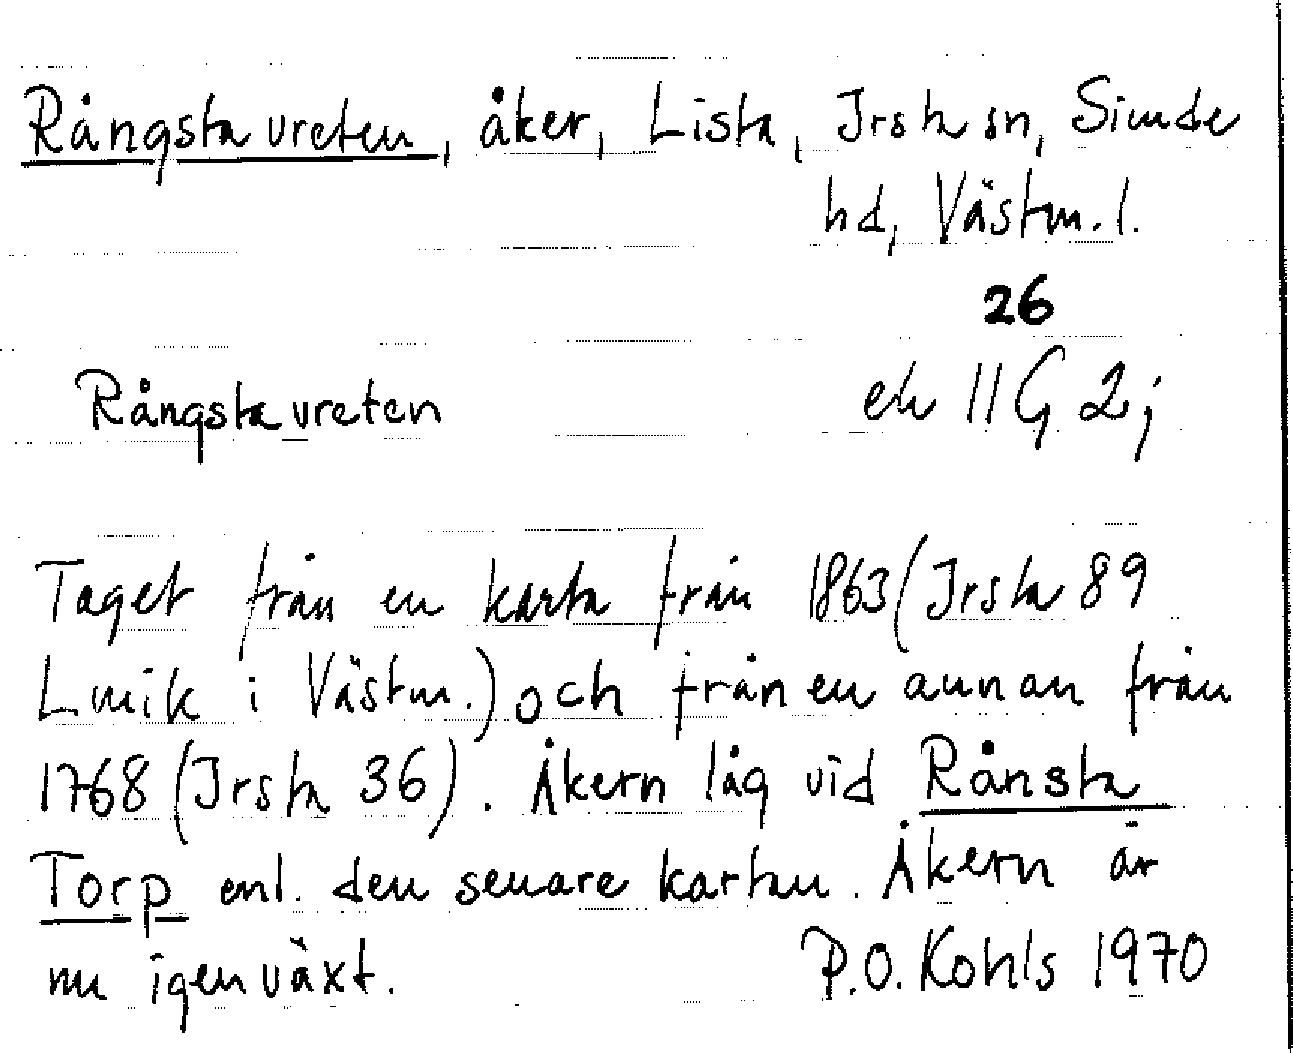 Rångsta vreten, åker, Lista, Irsta sn, Siende
hd, Västm. l.
26
Rångsta vreten ek 11 G 2 j
Taget från en karta från 1863 (Irsta 89
Lmik i Västm.) och från en annan från
1768 (Irsta 36). Åkern låg vid Rånsta
Torp enl. den senare kartan. Åkern är
nu igenväxt. P.O. Kohls 1970